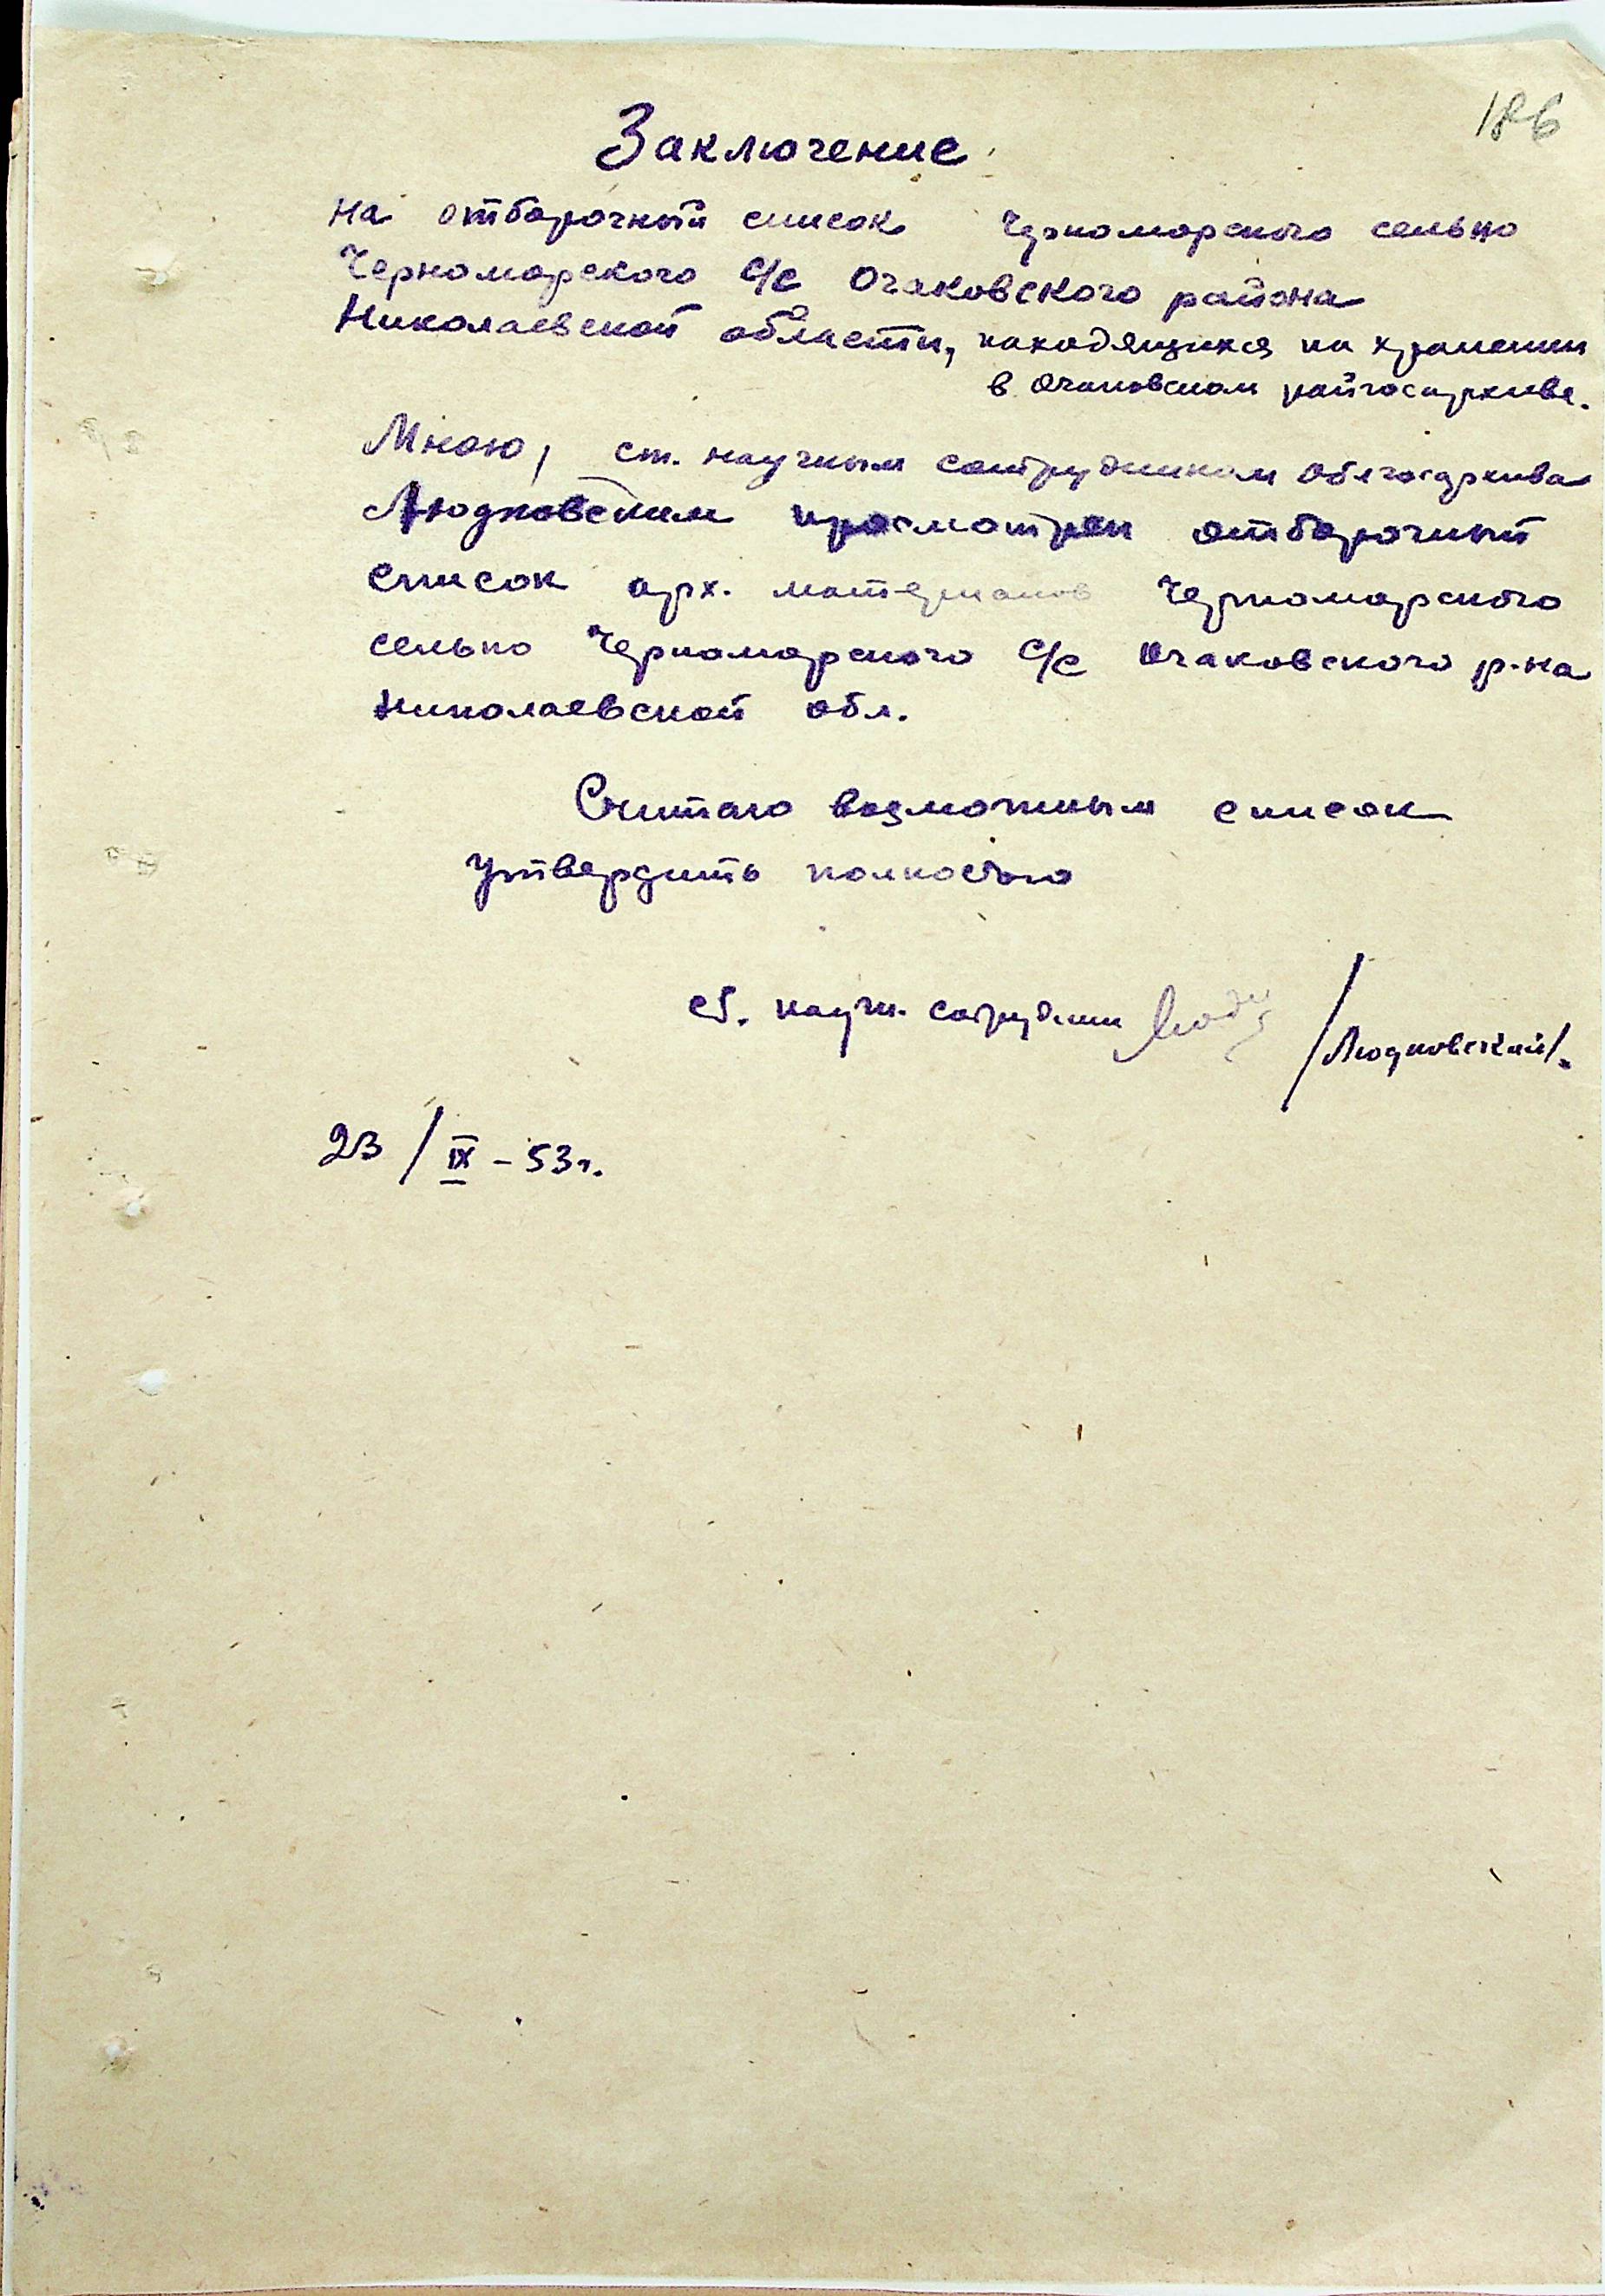 186
Заключение
на отборочный список Черноморского сельпо
Черноморского с/с Очаковского района
Николаевской области, находящихся на хранении
в Очаковском райгосархиве.
Мною, ст. научным сотрудником Облгосархива
Людковским просмотрен отборочный
список арх. материалов Черноморского
сельпо Черноморского с/с Очаковского р-на
Николаевской обл.
Считаю возможным список
утвердить полностью
ст. научн. сотрудник /Людковский/.
23/IX - 53 г.